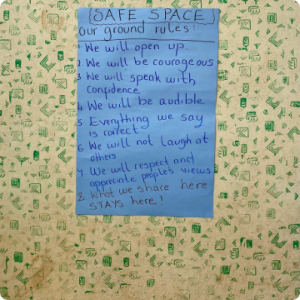 (SAFE SPACE)
Our ground rules
1. We will open up.
2. We will be courageous
3. We will speak with
confidence
4. We will be audible
5. Everything we say
is correct
6. We will not laugh at
others
7. We will respect and
appreciate people's views
8. What we share here
STAYS here!